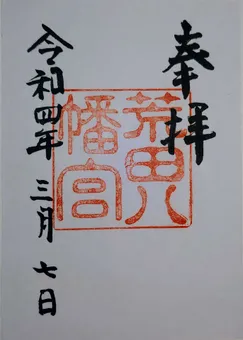 奉拝
荒田八幡宮
令和四年三月七日